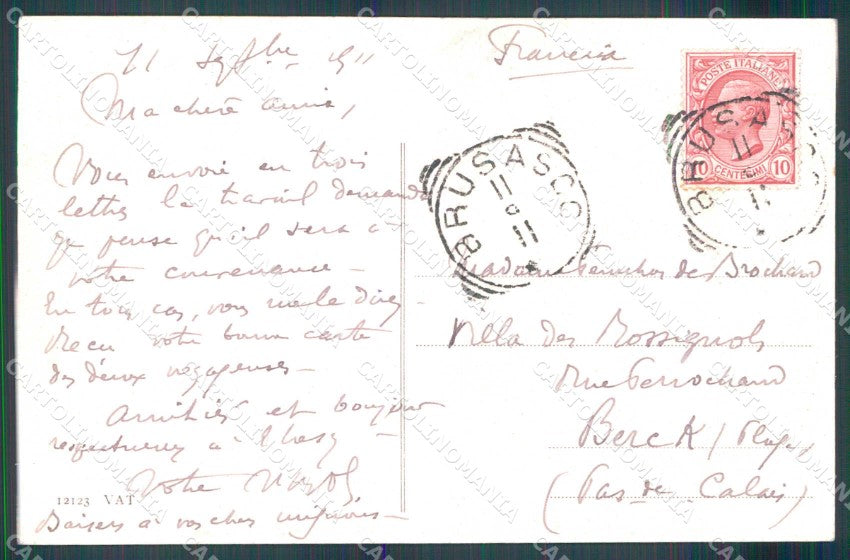 11 Septbre 1911
Ma chère amie,
Vous envoie en trois
lettres le travail demandé
que pense qu'il sera à
votre convenance -
En tous cas, vous me le direz -
Recu votre bonne carte
des deux voyageuses -
Amitiés et bonjour
à
Votre
Baisers à vos chers mignons -
12123 VAT
Francia
POSTE ITALIANE
10 CENTESIMI 10
BRUSASCO
11
11
BRUSASCO
11
11
Madame de Brochard
Villa des Rossignols
Rue
Berck / Plage,
(Pas-de-Calais)
CARTOLINOMANIA